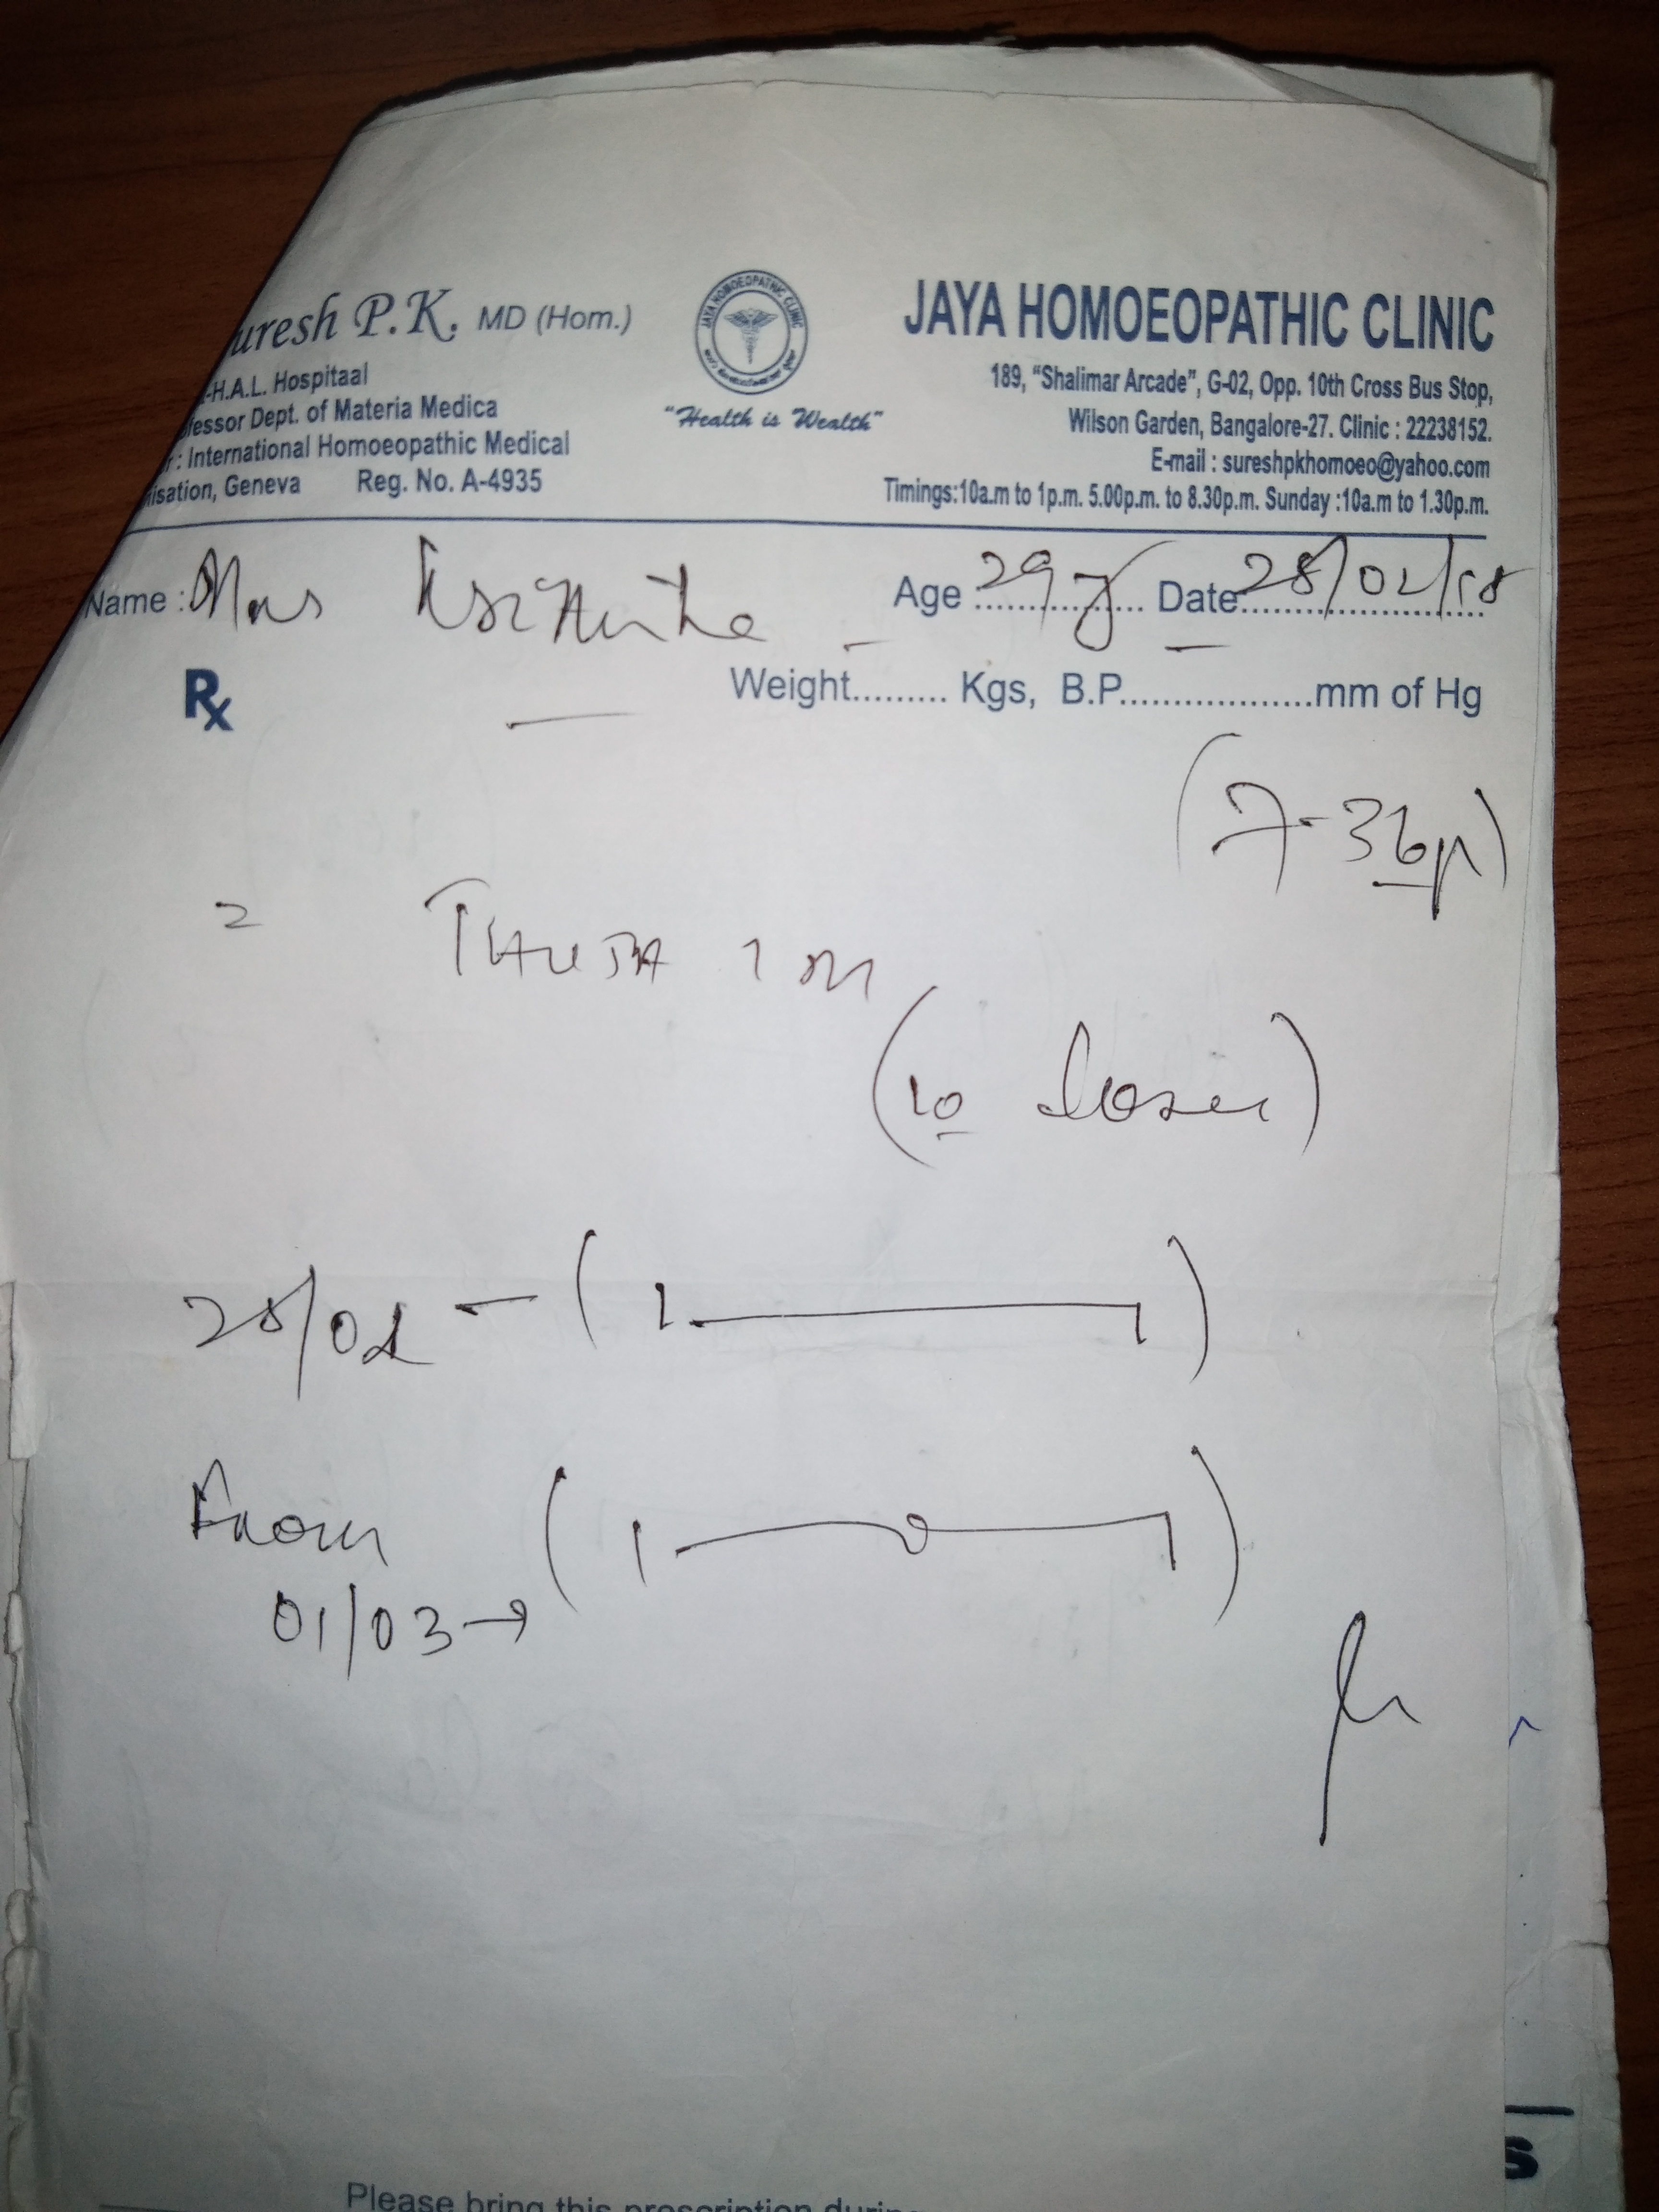 uresh P.K. MD (Hom.)
-H.A.L. Hospitaal
fessor Dept. of Materia Medica
r : International Homoeopathic Medical
nisation, Geneva Reg. No. A-4935
JAYA HOMOEOPATHIC CLINIC
"Health is Wealth"
JAYA HOMOEOPATHIC CLINIC
189, "Shalimar Arcade", G-02, Opp. 10th Cross Bus Stop,
Wilson Garden, Bangalore-27. Clinic : 22238152.
E-mail : sureshpkhomoeo@yahoo.com
Timings:10a.m to 1p.m. 5.00p.m. to 8.30p.m. Sunday :10a.m to 1.30p.m.
Name : Age 29 y Date 28/02/18
Rx Weight......... Kgs, B.P...................mm of Hg
(7-36p)
= THUJA 1M
(10 doses)
28/02 - ( 1 — 1 )
From ( 1 — 0 — 1 )
01/03 →
Please bring this prescription durin
S